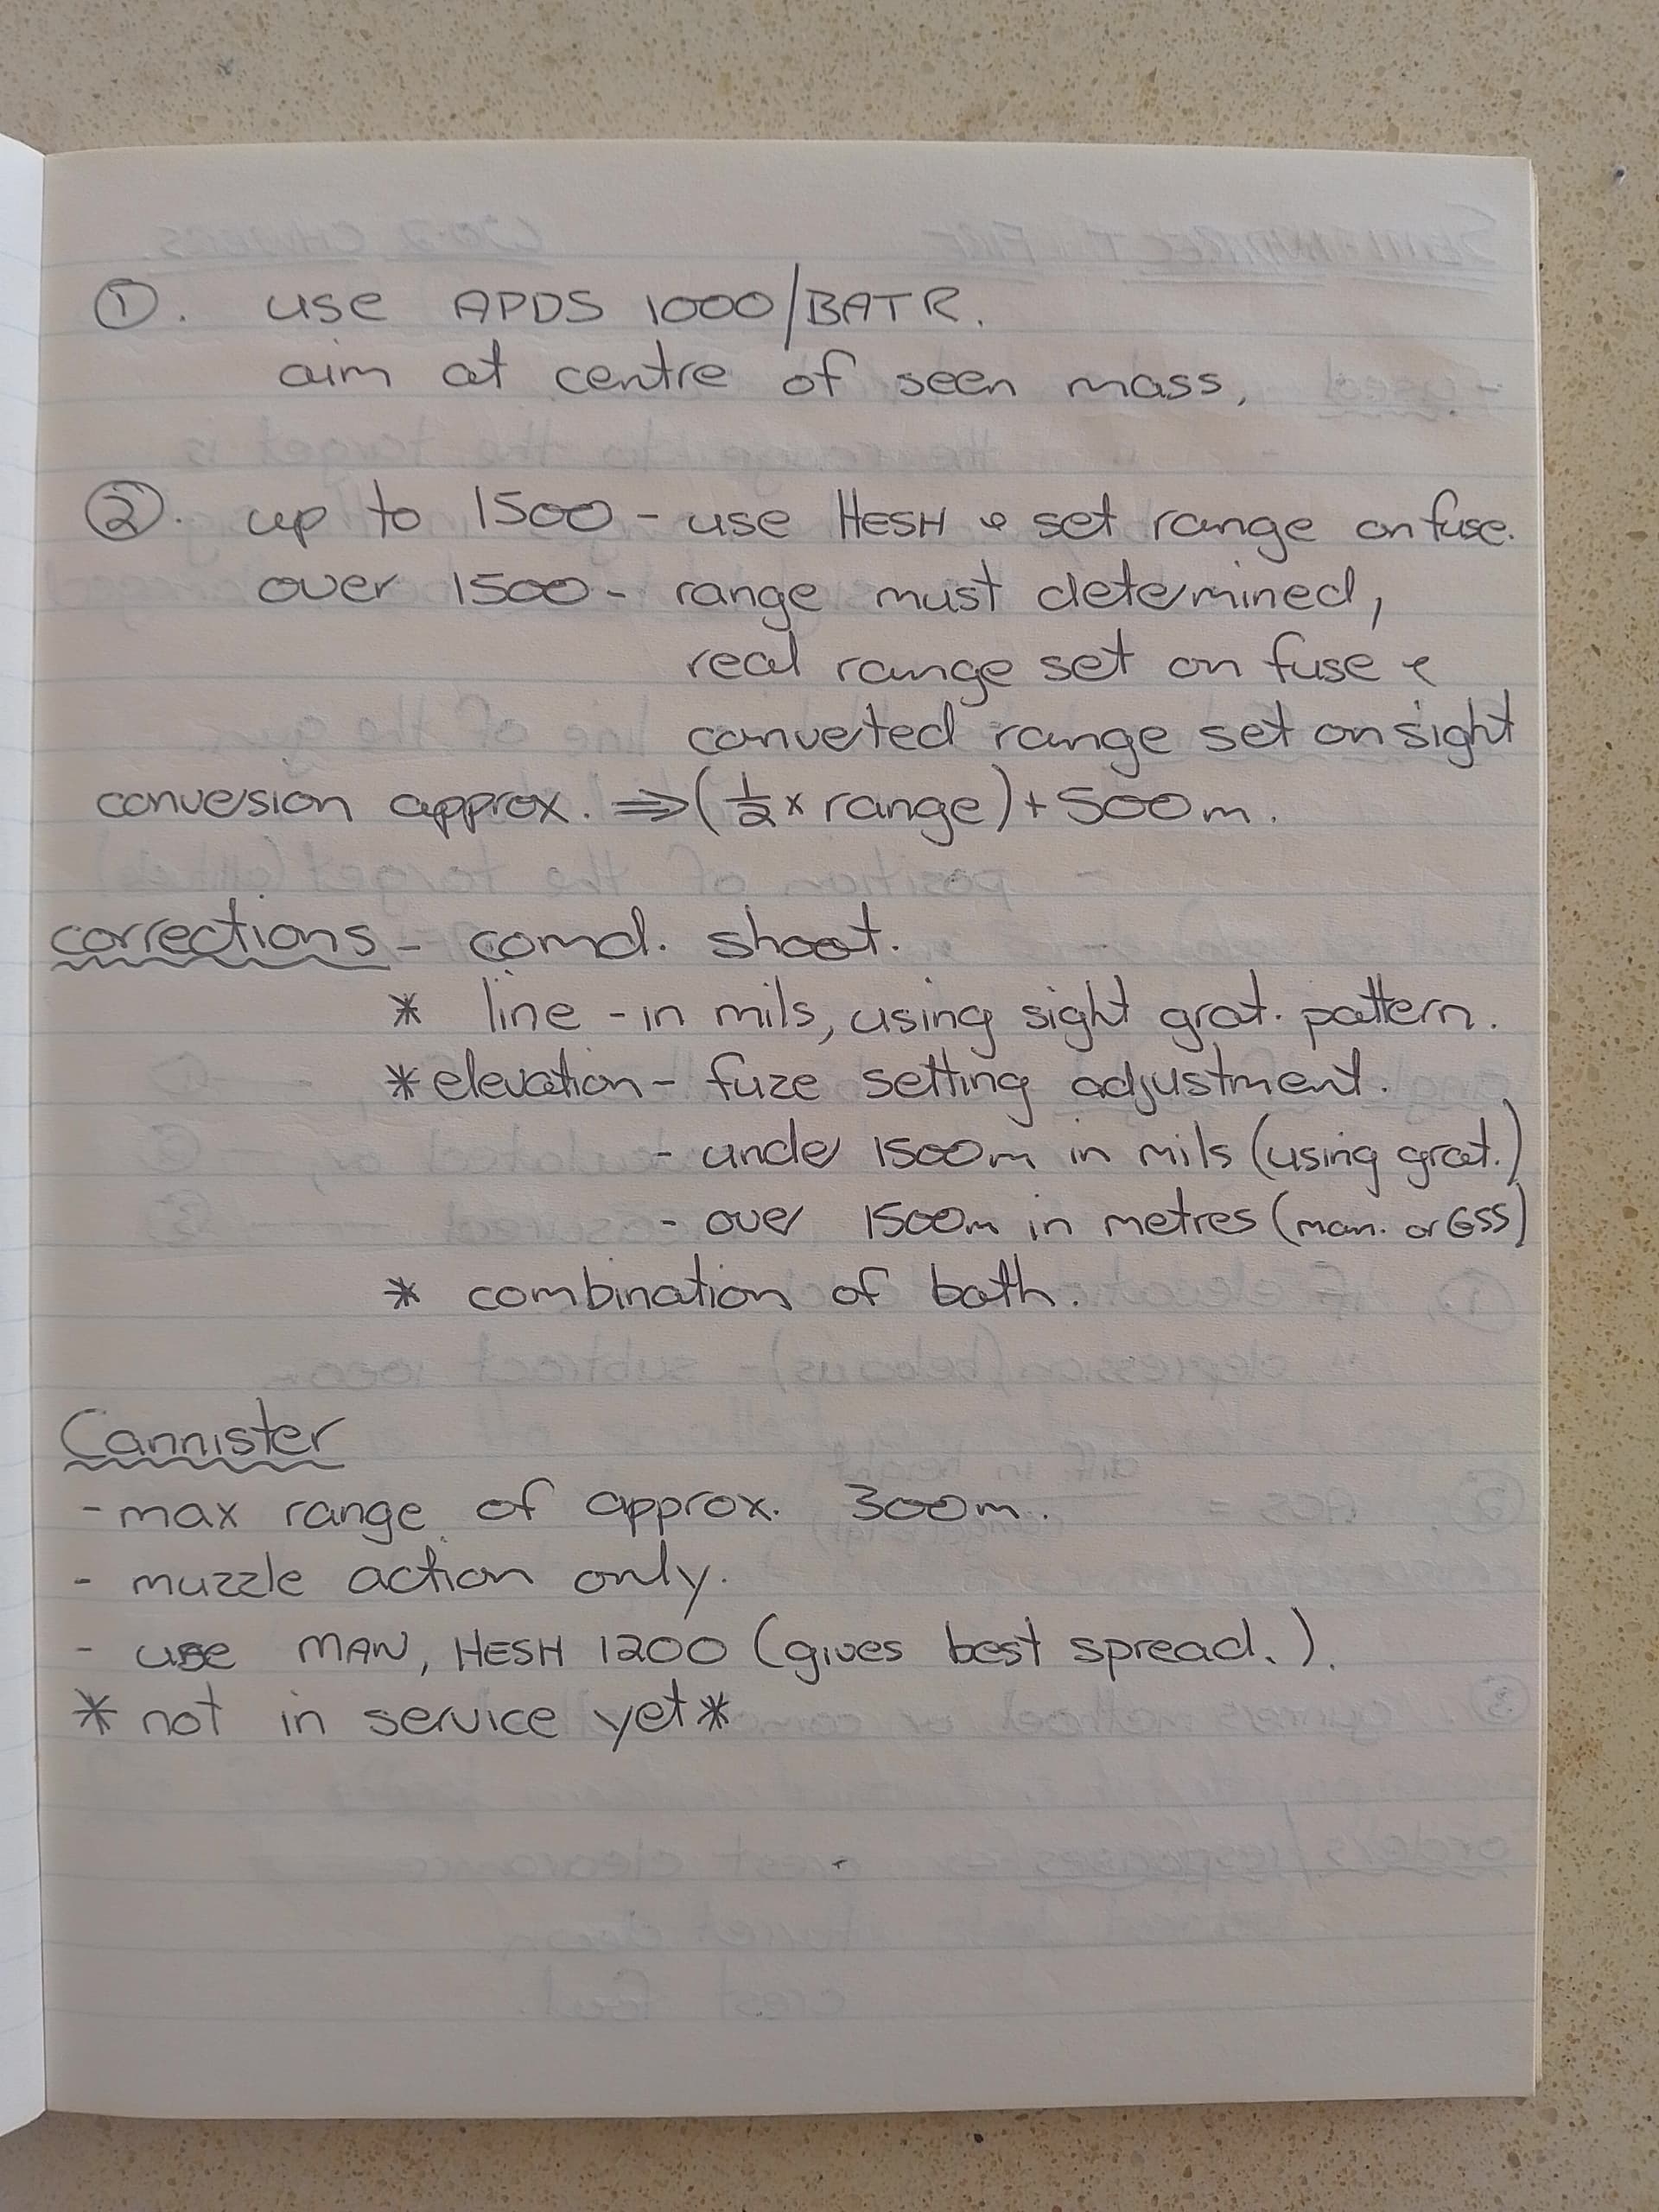 ①. use APDS 1000/BATR.
aim at centre of seen mass,
②. up to 1500 - use HESH & set range on fuse.
over 1500 - range must determined,
real range set on fuse &
converted range set on sight
conversion approx. ⇒ (½ x range) + 500m.
corrections - comd. shoot.
* line - in mils, using sight grat. pattern.
* elevation - fuze setting adjustment.
- under 1500m in mils (using grat.)
- over 1500m in metres (man. or GSS)
* combination of both.
Cannister
- max range of approx. 300m.
- muzzle action only.
- use MAN, HESH 1200 (gives best spread.).
* not in service yet *